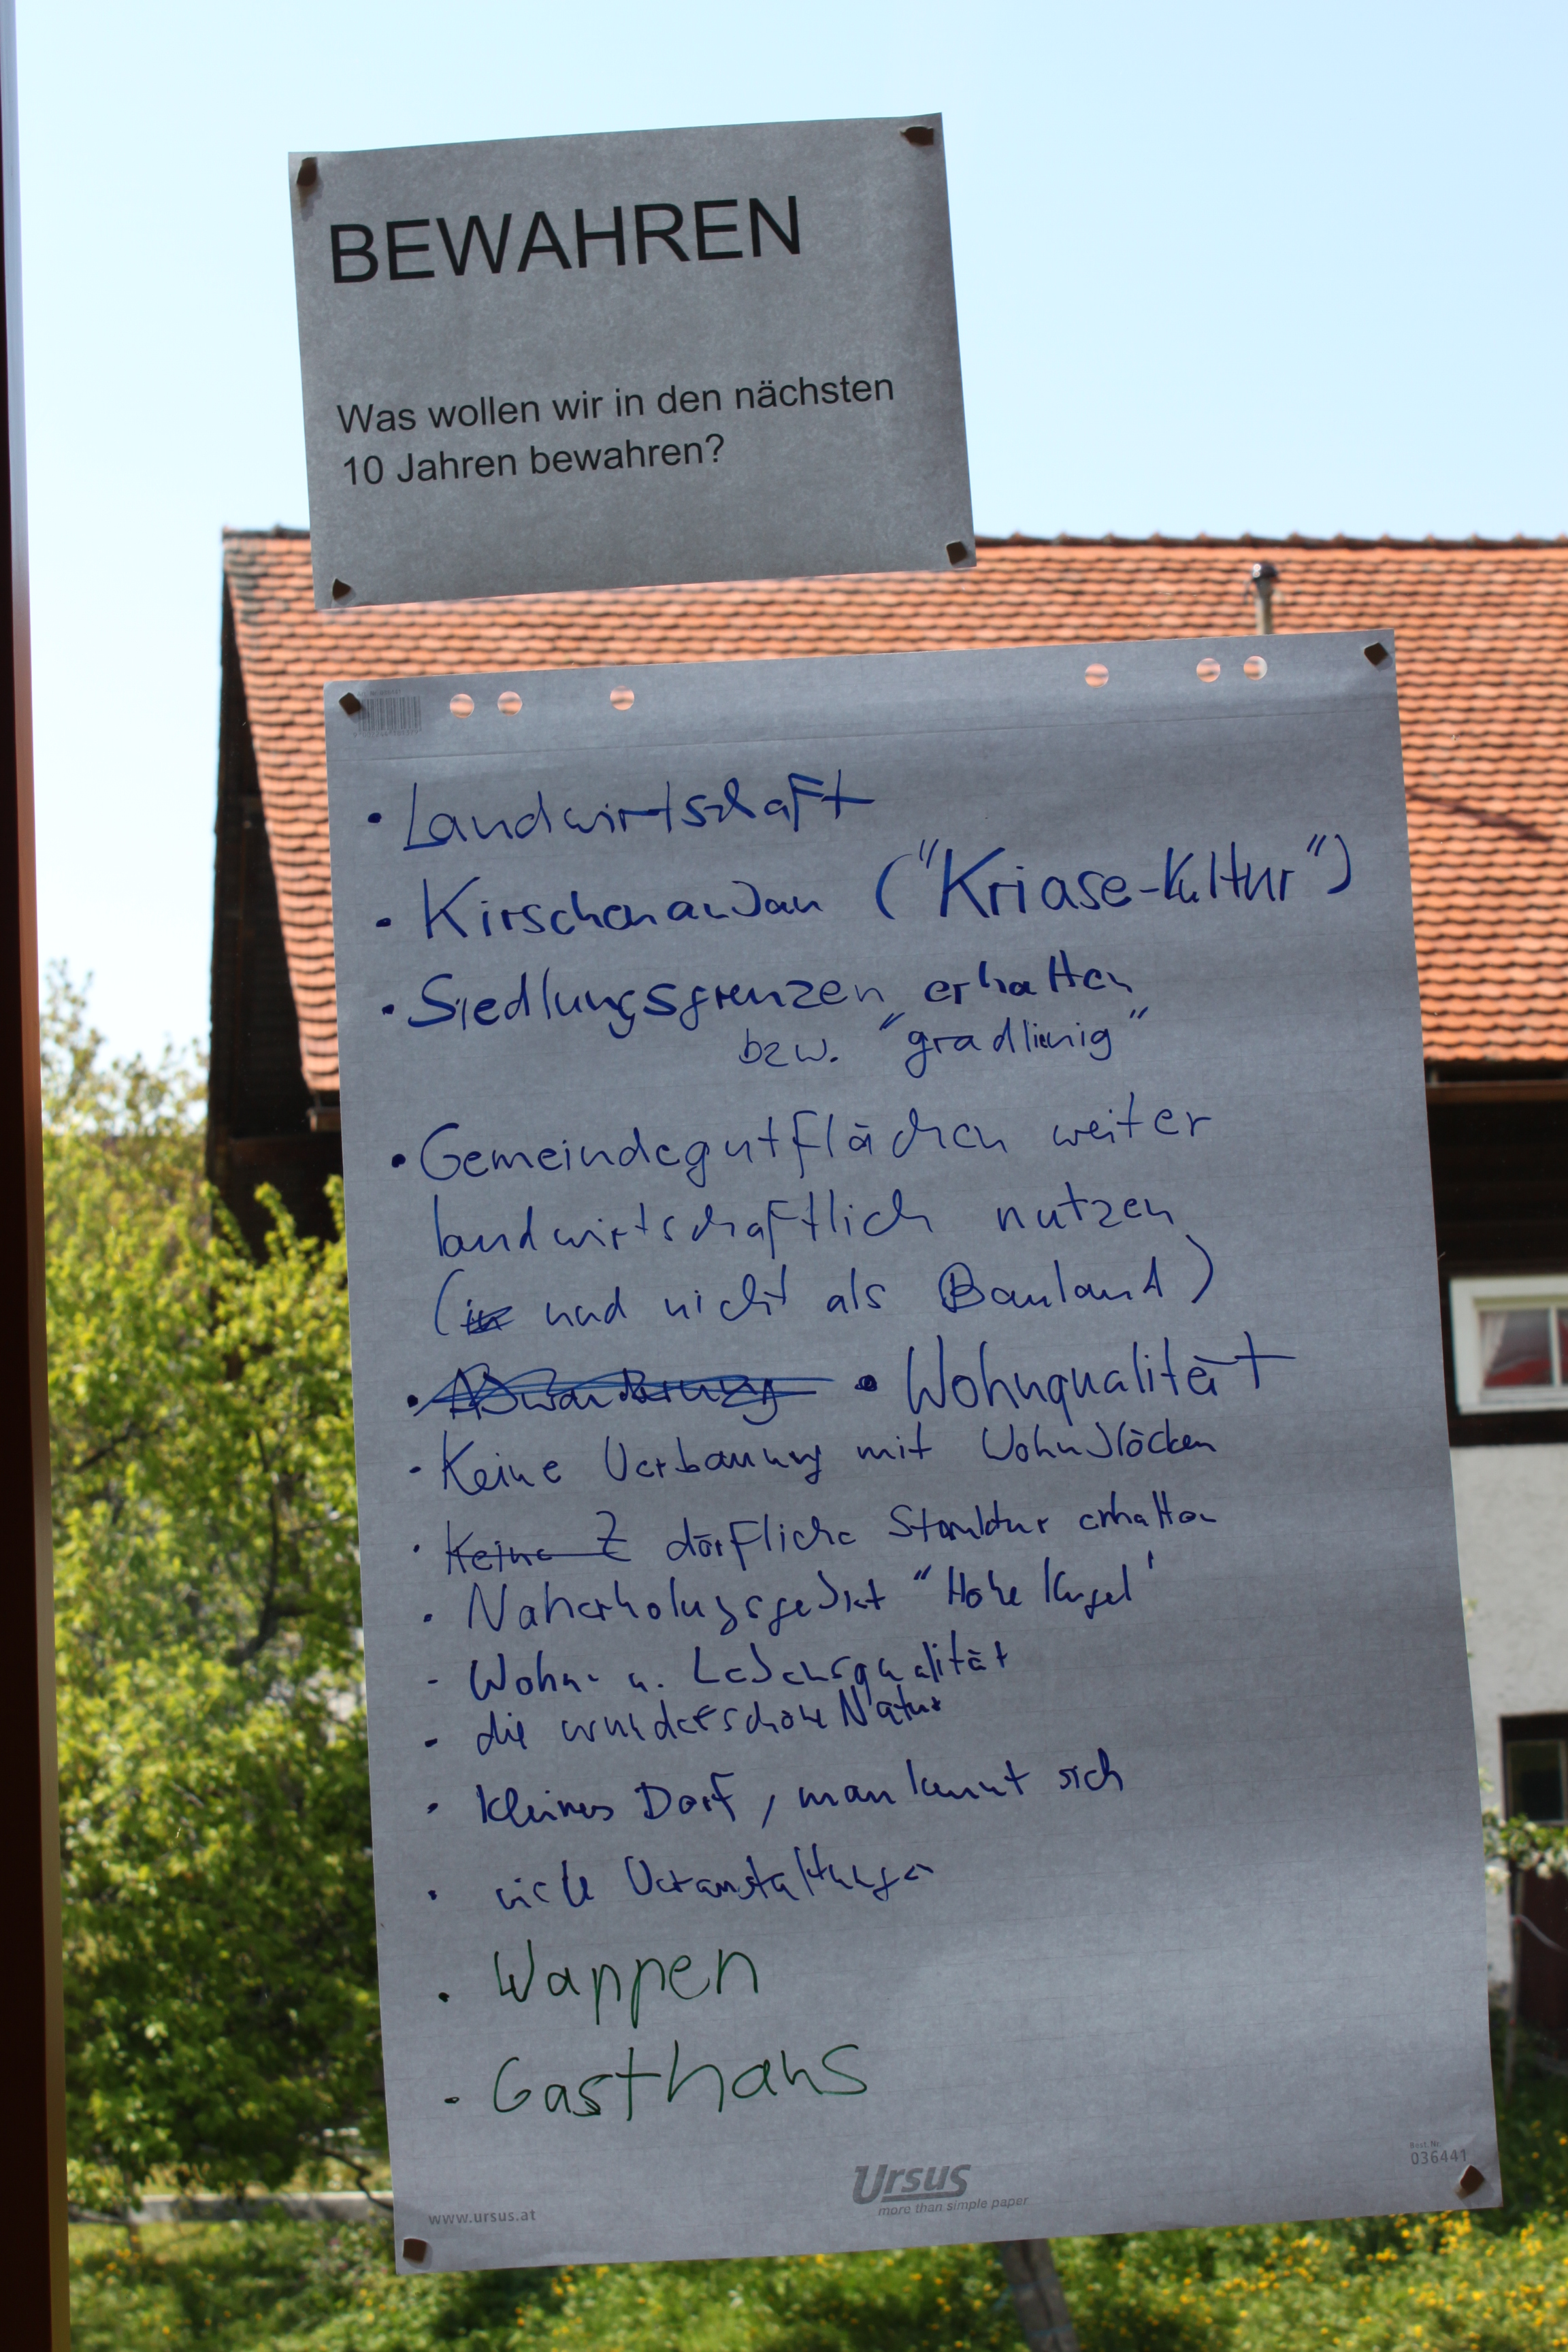 BEWAHREN
Was wollen wir in den nächsten
10 Jahren bewahren?
• Landwirtschaft
• Kirschenanbau ("Kriase-Kultur")
• Siedlungsgrenzen erhalten
bzw. "gradlinig"
• Gemeindegutflächen weiter
landwirtschaftlich nutzen
(und nicht als Bauland)
• Abwanderung • Wohnqualität
• Keine Verbauung mit Wohnblöcken
• Keine Z dörfliche Struktur erhalten
• Naherholungsgebiet "Hohe Kugel"
- Wohn- u. Lebensqualität
- die wunderschöne Natur
• kleines Dorf, man kennt sich
• viele Veranstaltungen
• Wappen
- Gasthaus
Ursus
more than simple paper
www.ursus.at
Best. Nr.
036441